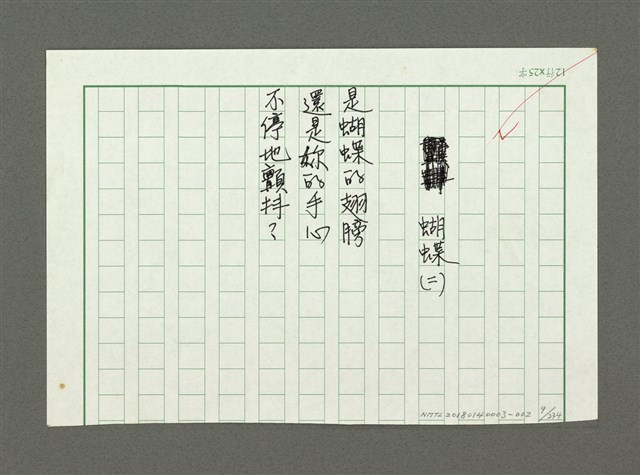 蝴蝶(二)
是蝴蝶的翅膀
還是妳的手心
不停地顫抖?
12行X25字
NMTL20180140003-002
9/234